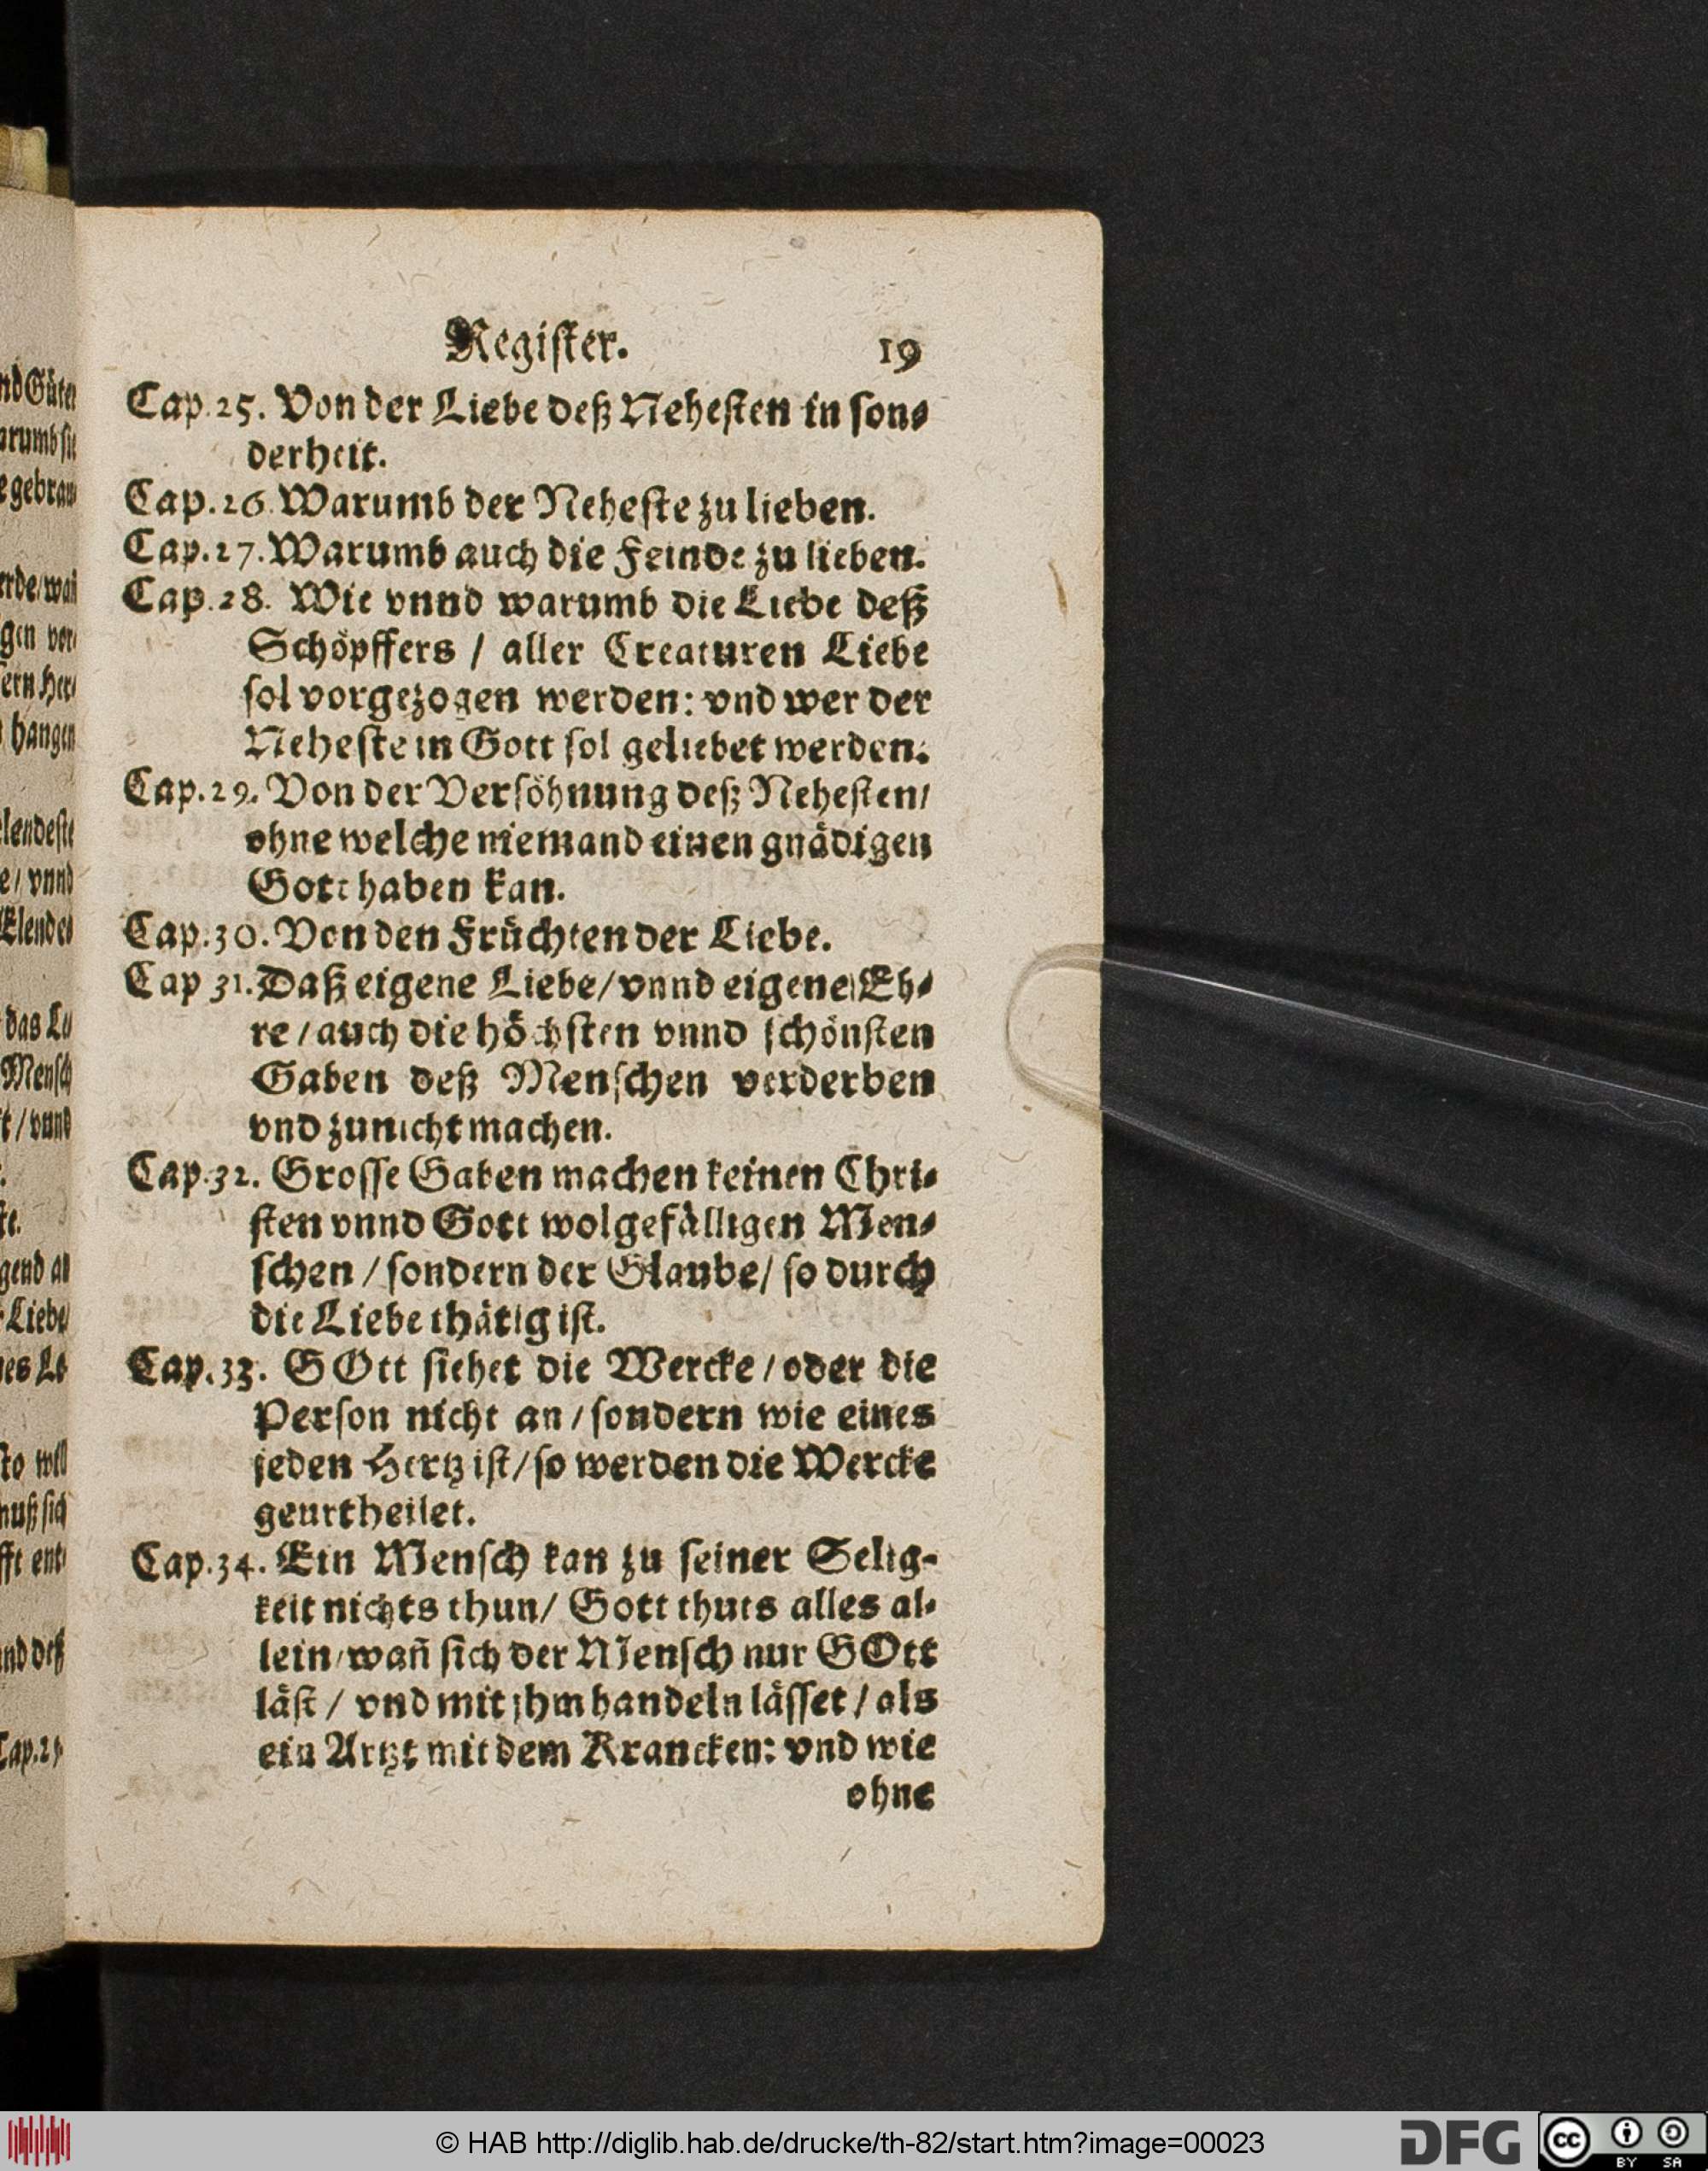 Regiſter. 19
Cap. 25. Von der Liebe deß Neheſten in ſon⸗
derheit.
Cap. 26. Warumb der Neheſte zu lieben.
Cap. 27. Warumb auch die Feinde zu lieben.
Cap. 28. Wie vnnd warumb die Liebe deß
Schöpffers / aller Creaturen Liebe
ſol vorgezogen werden: vnd wer der
Neheſte in Gott ſol geliebet werden.
Cap. 29. Von der Verſöhnung deß Neheſten/
ohne welche niemand einen gnädigen
Gott haben kan.
Cap. 30. Von den Früchten der Liebe.
Cap 31. Daß eigene Liebe/ vnnd eigene Eh⸗
re / auch die höchſten vnnd ſchönſten
Gaben deß Menſchen verderben
vnd zunicht machen.
Cap. 32. Groſſe Gaben machen keinen Chri⸗
ſten vnnd Gott wolgefälligen Men⸗
ſchen / ſondern der Glaube/ ſo durch
die Liebe thätig iſt.
Cap. 33. GOtt ſiehet die Wercke / oder die
Perſon nicht an / ſondern wie eines
jeden Hertz iſt / ſo werden die Wercke
geurtheilet.
Cap. 34. Ein Menſch kan zu ſeiner Selig-
keit nichts thun/ Gott thuts alles al⸗
lein / wañ ſich der Menſch nur GOtt
läſt / vnd mit jhm handeln läſſet / als
ein Artzt mit dem Krancken: vnd wie
ohne
© HAB http://diglib.hab.de/drucke/th-82/start.htm?image=00023
DFG
cc BY SA